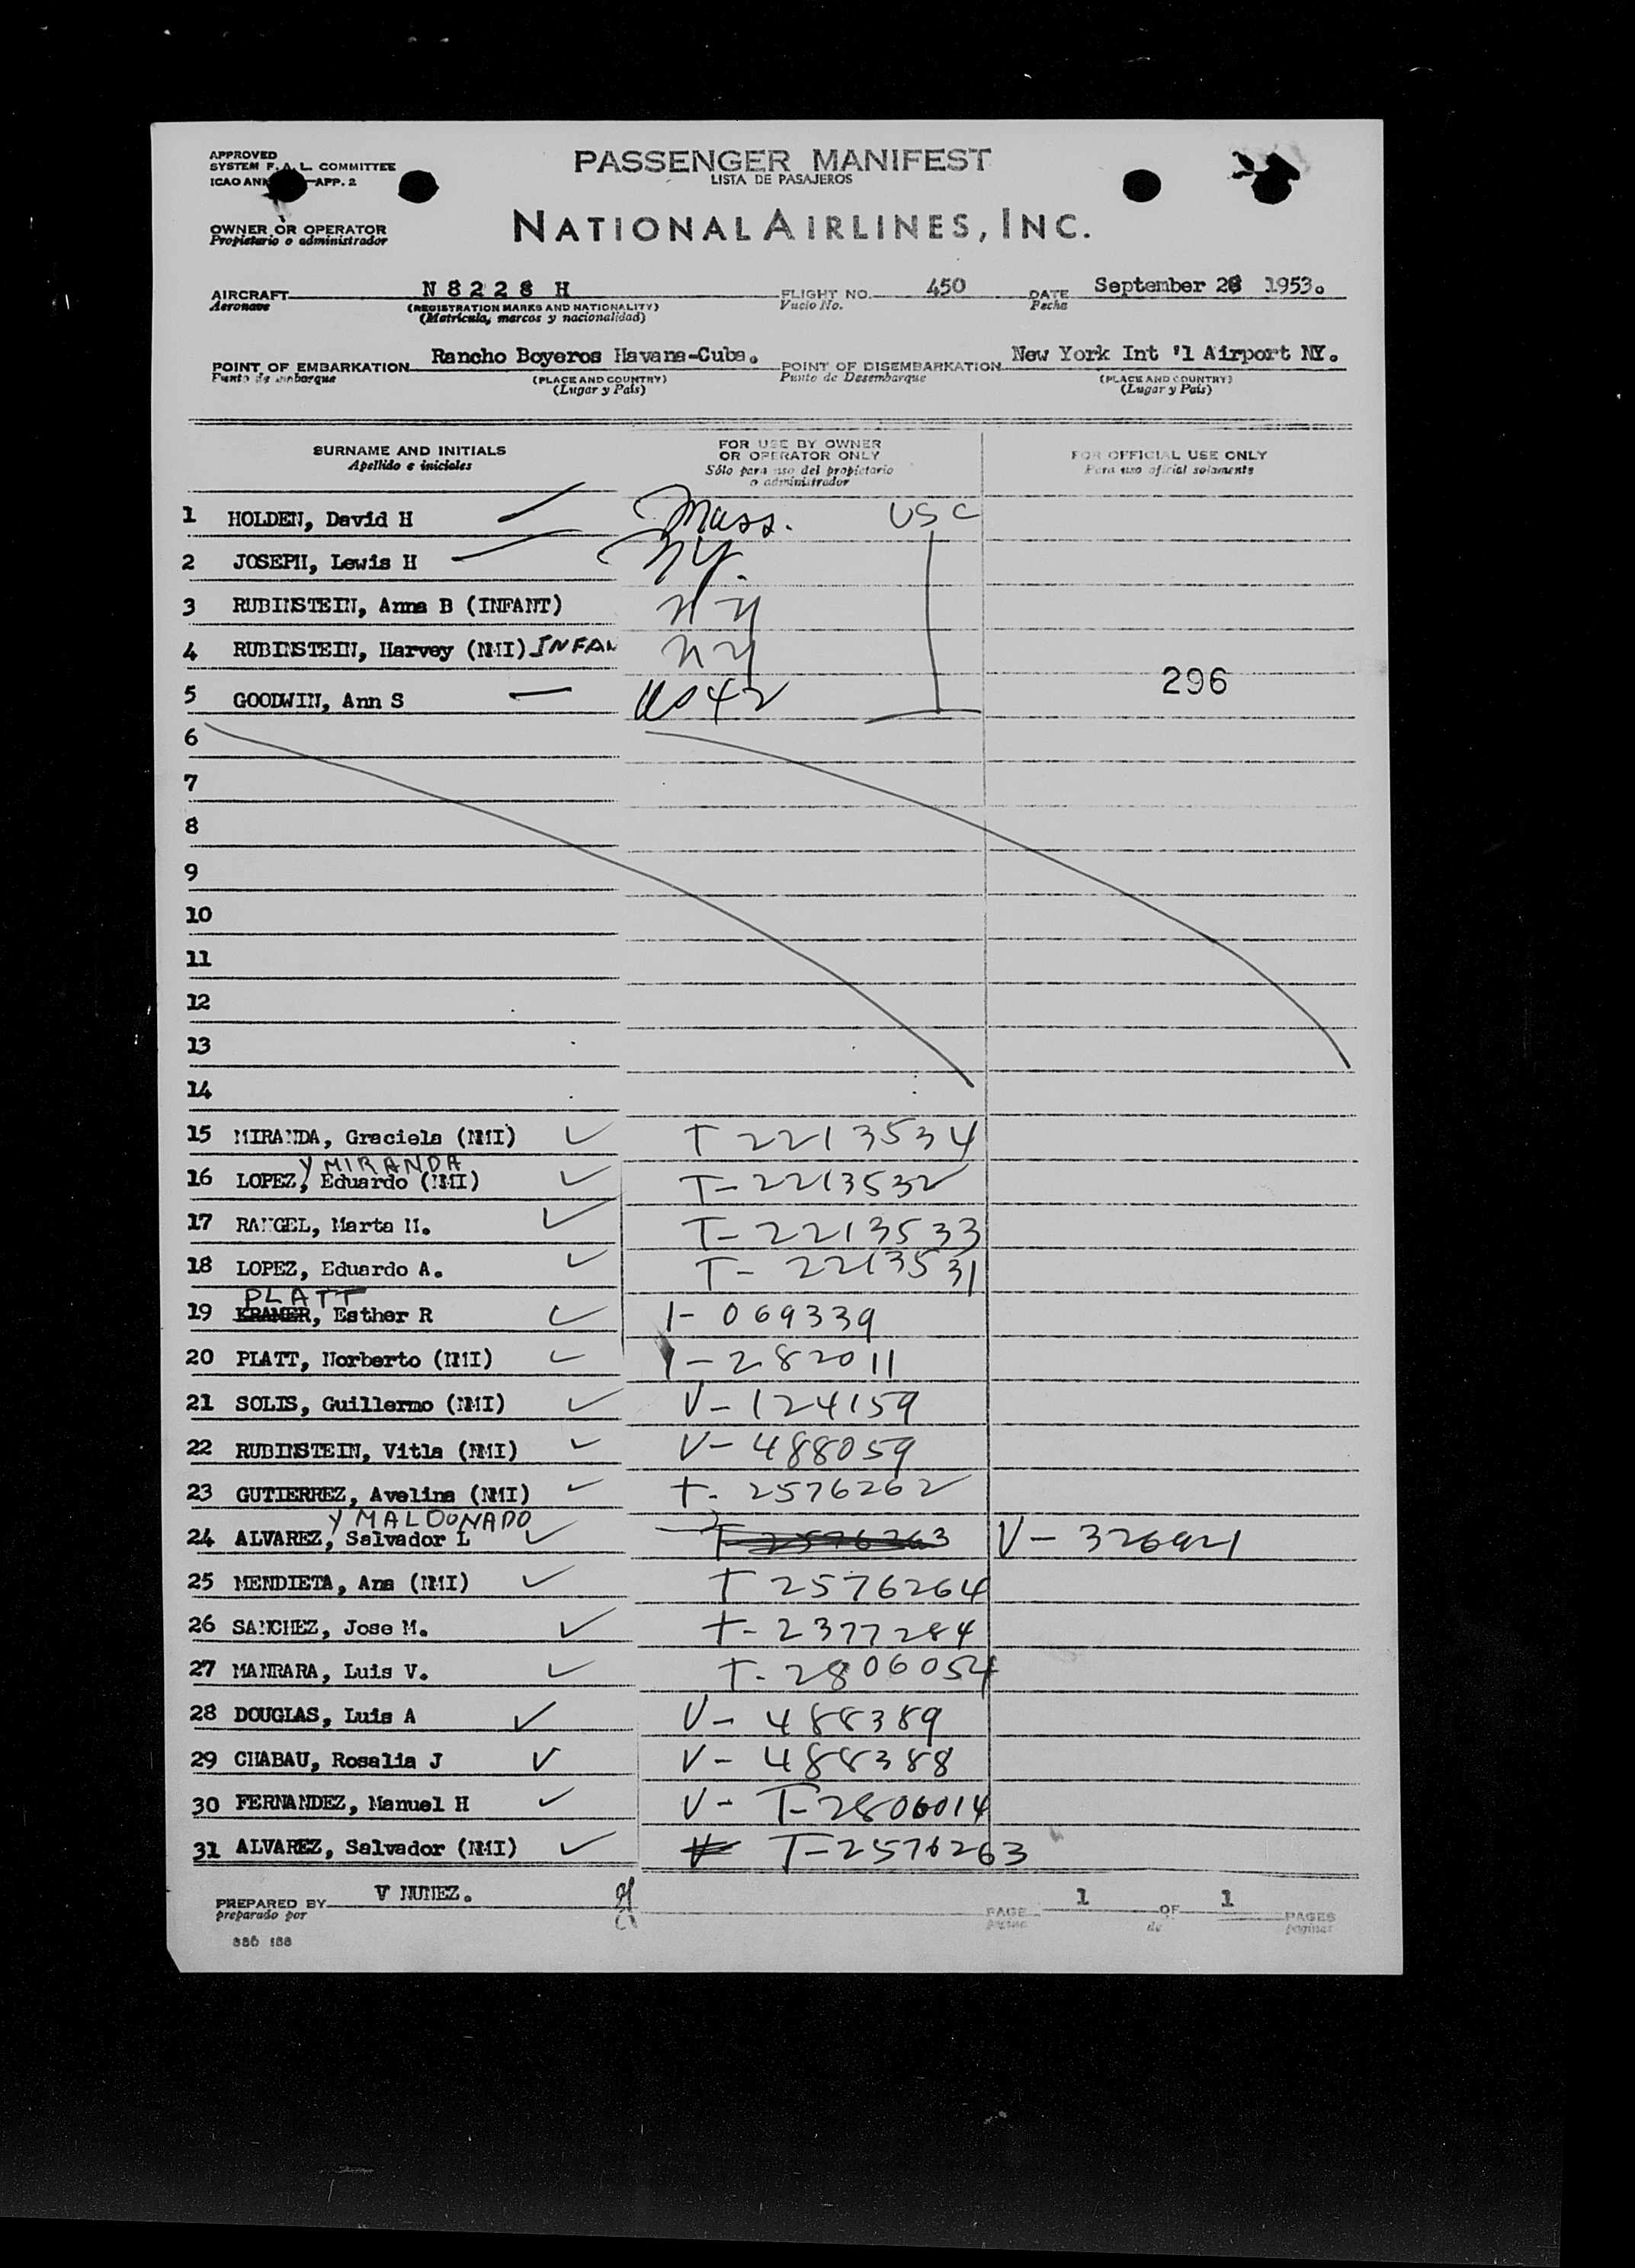 APPROVED
SYSTEM F. A. L. COMMITTEE
ICAO APP. 2
PASSENGER MANIFEST
LISTA DE PASAJEROS
OWNER OR OPERATOR
Propietario o administrador
NATIONAL AIRLINES, INC.
AIRCRAFT N 8 2 2 8 H FLIGHT NO. 450 DATE September 28 1953.
Aeronave (REGISTRATION MARKS AND NATIONALITY) Vuelo No. Fecha
(Matrícula, marcos y nacionalidad)
POINT OF EMBARKATION Rancho Boyeros Havana-Cuba. POINT OF DISEMBARKATION New York Int 'l Airport NY.
Punto de embarque (PLACE AND COUNTRY) Punto de Desembarque (PLACE AND COUNTRY)
(Lugar y País) (Lugar y País)
SURNAME AND INITIALS
Apellido e iniciales
FOR USE BY OWNER
OR OPERATOR ONLY
Sólo para uso del propietario
o administrador
FOR OFFICIAL USE ONLY
Para uso oficial solamente
1 HOLDEN, David H Mass. USC
2 JOSEPH, Lewis H NY.
3 RUBINSTEIN, Anna B (INFANT) NY
4 RUBINSTEIN, Harvey (NMI) INFAN NY
296
5 GOODWIN, Ann S
6
7
8
9
10
11
12
13
14
15 MIRANDA, Graciela (NMI) T 2213534
Y MIRANDA
16 LOPEZ, Eduardo (NMI) T-2213532
17 RANGEL, Marta M. T-2213533
18 LOPEZ, Eduardo A. T-2213531
PLATT
19 KRAMER, Esther R I-069339
20 PLATT, Norberto (NMI) I-282011
21 SOLIS, Guillermo (NMI) V-124159
22 RUBINSTEIN, Vitla (NMI) V-488059
23 GUTIERREZ, Avelina (NMI) T-2576262
Y MALDONADO
24 ALVAREZ, Salvador L T 2576263 V-326921
25 MENDIETA, Ana (NMI) T 2576264
26 SANCHEZ, Jose M. T-2377284
27 MANRARA, Luis V. T-2806054
28 DOUGLAS, Luis A V-488389
29 CHABAU, Rosalia J V-488388
30 FERNANDEZ, Manuel H V-T-2806014
31 ALVAREZ, Salvador (NMI) V T-2576263
PREPARED BY V NUNEZ. PAGE 1 OF 1 PAGES
preparado por página de paginas